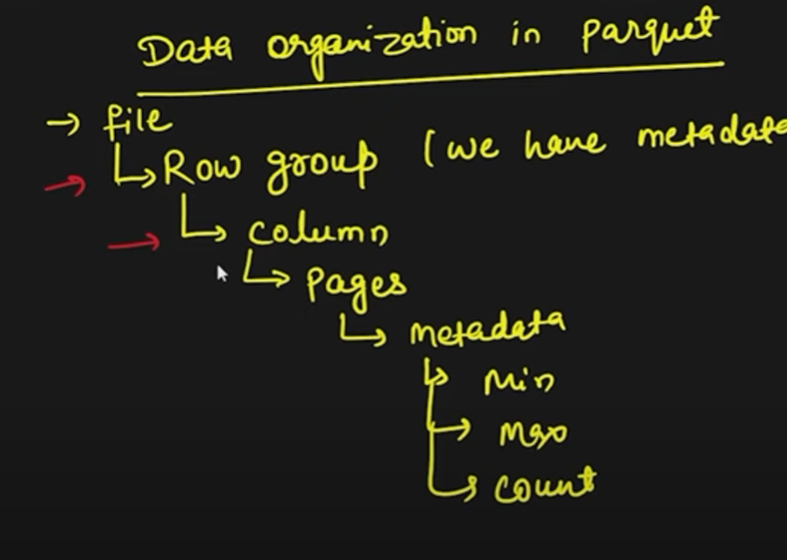 Data organization in Parquet
→ file
↳ Row group (we have metadata
↳ column
↳ Pages
↳ metadata
↳ Min
→ Max
↳ count